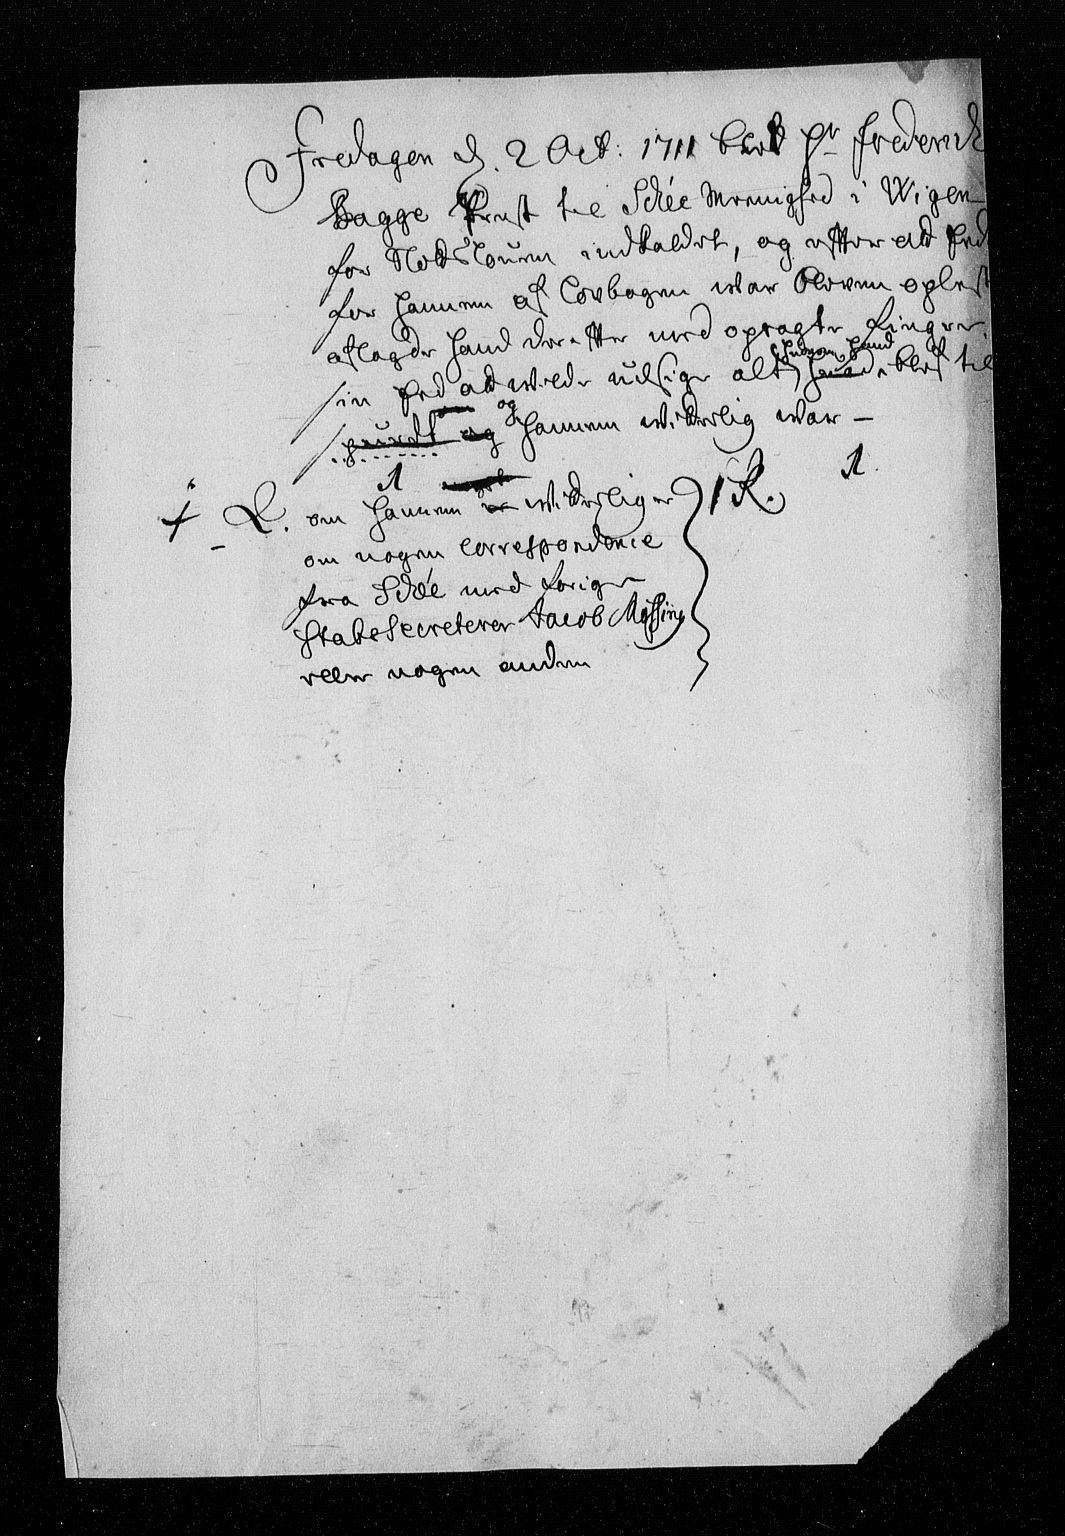 Fredagen d. 2 Oct: 1711 blef Hr Frederick
Bagge Præst til Schee Meenighed i Wigen
for Slots Louen indkaldet, og effter att Eed
for hannem af Lovbogen war bleven oplest
aflagde hand der effter med opragte Fingrer
sin Eed att wilde udsige alt, hvorom hand
hand blef til
spurdt og og hannem witterlig war —
1 1.
Q. om hannem er witterlig er
om nogen correspondence
fra Schee med forige
StatsSecreterer Jacob Mossing
eller nogen anden
1 R.